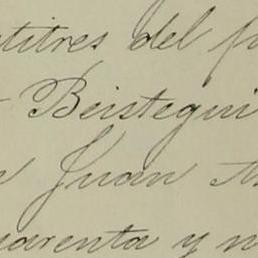 titres del
Beistegui
Juan
uarenta y